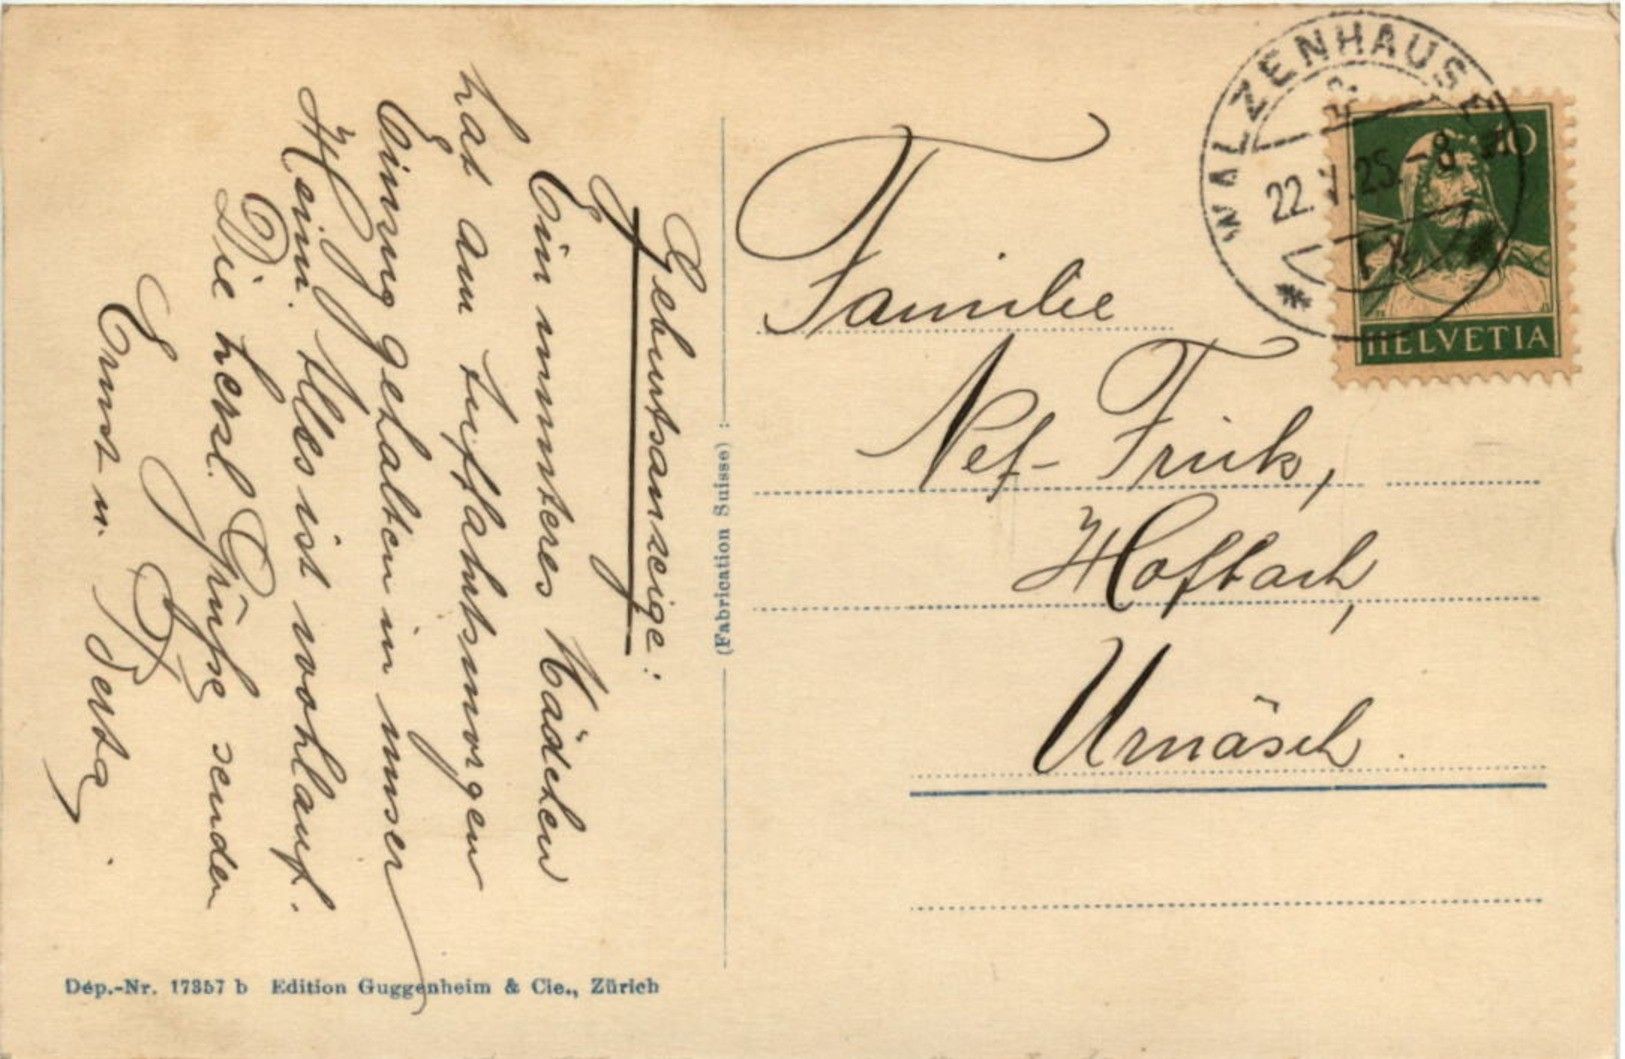 Geburtsanzeige:
Ein munteres Mädchen
hat am Auffahrtsmorgen
Einzug gehalten in unser
Heim. Alles ist wohlauf.
Die herzl. Grüße senden
Ernst u. Berta
(Fabrication Suisse) :
Familie
Nef-Frick,
Hofbach,
Urnäsch.
WALZENHAUSEN
22. V. 25. -8
10
HELVETIA
Dép.-Nr. 17357 b Edition Guggenheim & Cie., Zürich